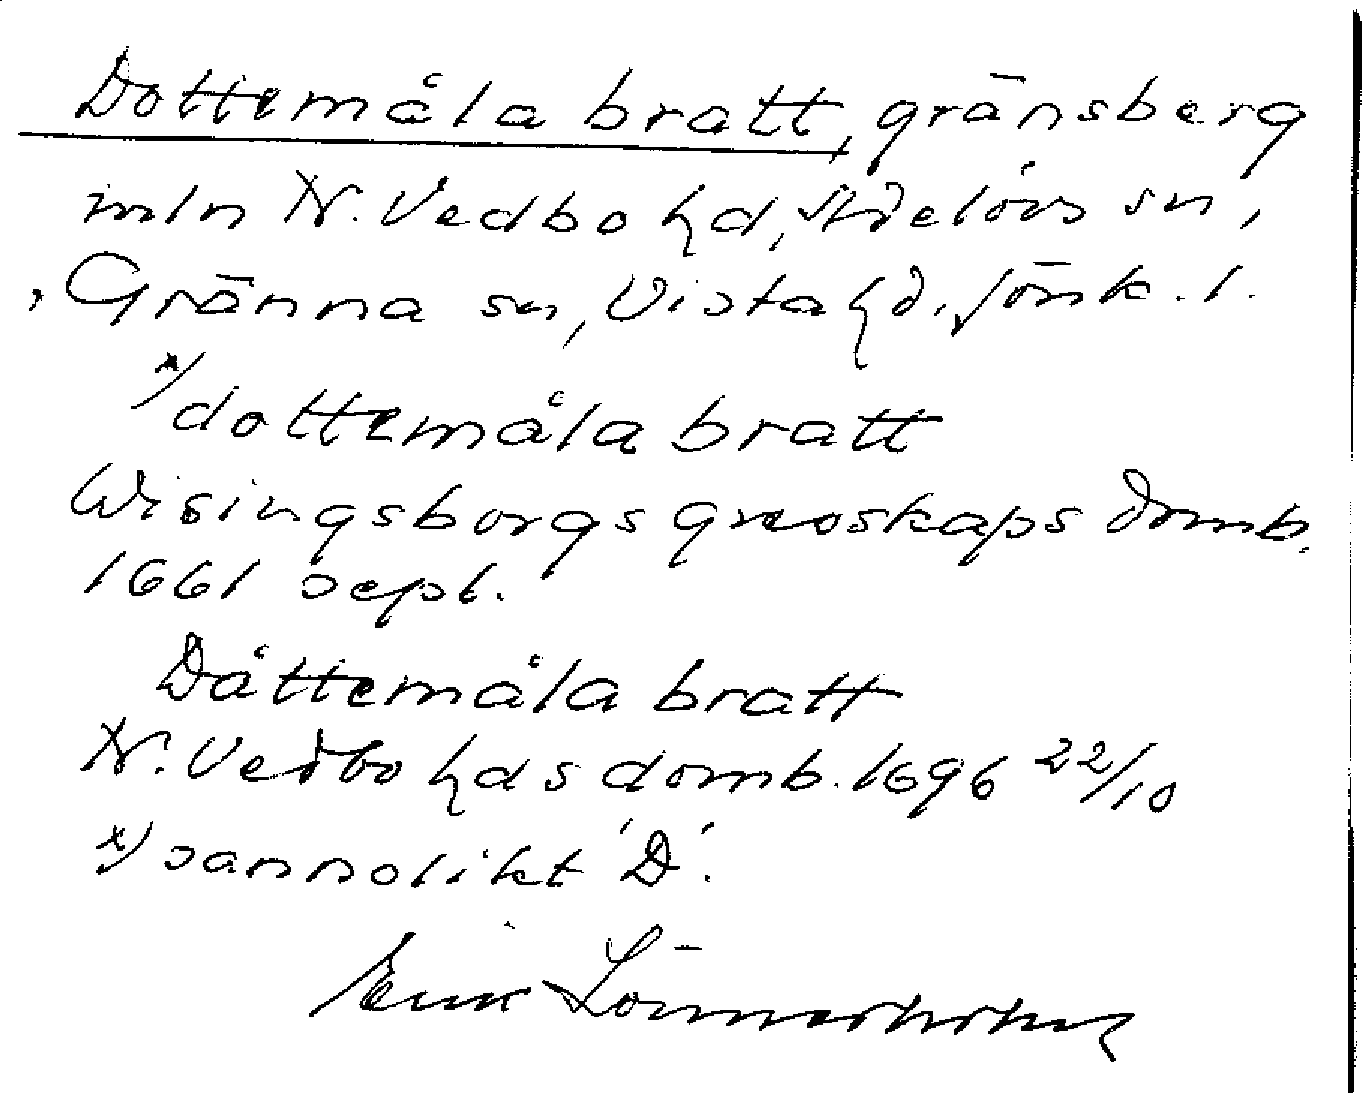 Dottemåla bratt, gränsberg
mln N. Vedbo hd, sn,
Gränna sn, Vista hd. Jönk. l.
x/ dottemåla bratt
Wisingsborgs grevskaps domb.
1661 sept.
Dåttemåla bratt
N. Vedbo hds domb. 1696 22/10
x/ sannolikt 'D'.
Erik